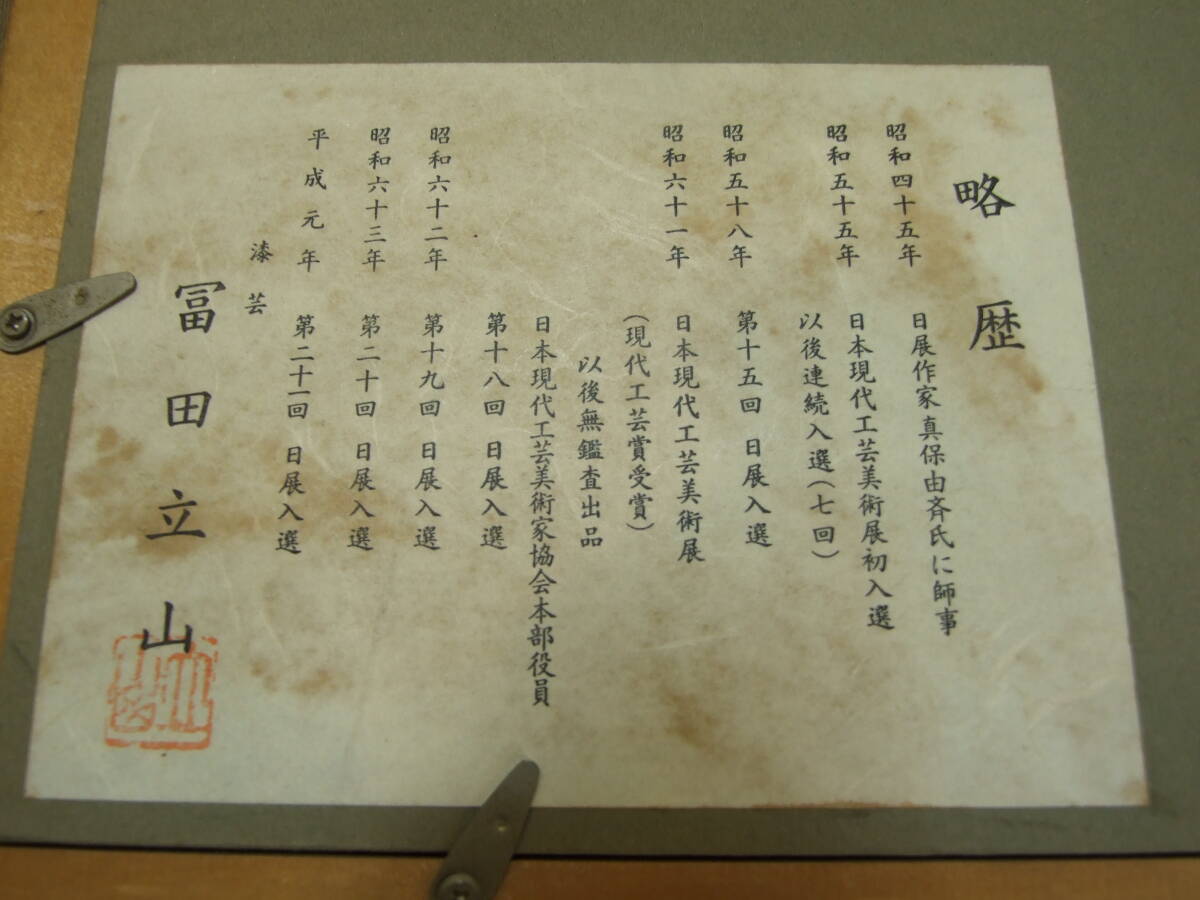 略歴
昭和四十五年 日展作家真保由斉氏に師事
昭和五十五年 日本現代工芸美術展初入選
以後連続入選(七回)
昭和五十八年 第十五回 日展入選
昭和六十一年 日本現代工芸美術展
(現代工芸賞受賞)
以後無鑑査出品
日本現代工芸美術家協会本部役員
第十八回 日展入選
昭和六十二年 第十九回 日展入選
昭和六十三年 第二十回 日展入選
平成元年 第二十一回 日展入選
漆芸
冨田立山